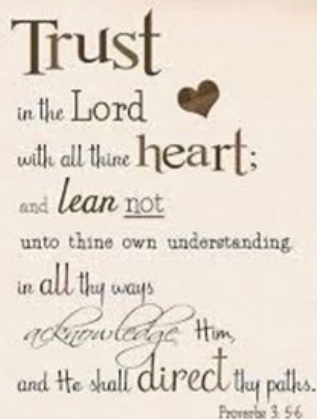 Trust
in the Lord
with all thine heart;
and lean not
unto thine own understanding
in all thy ways
acknowledge Him,
and He shall direct thy paths.
Proverbs 3: 5-6